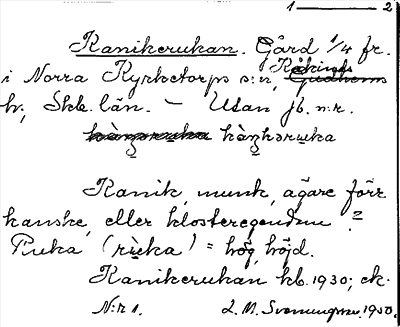 1 — 2
Kanikerukan. Gård 1/4 fr.
i Norra Kyrketorps s:n, Kåkinds
h., Skb. län. – Utan jb. n:r.
Kanik, munk, ägare förr
kanske, eller klosteregendom?
Ruka (rùka) = hög, höjd.
Kanikerukan kb. 1930; ek.
N:r 1. L. M. Svenungsson. 1950.